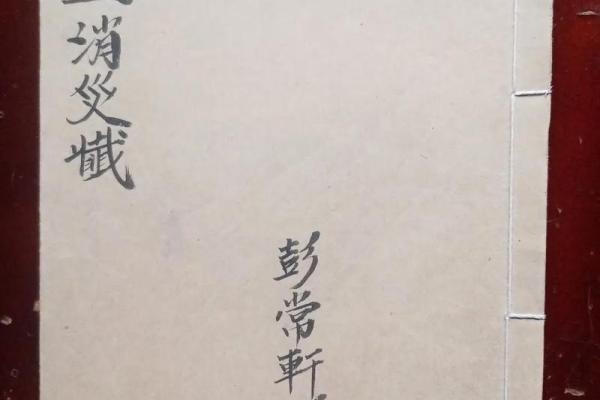 消災懺
彭常軒